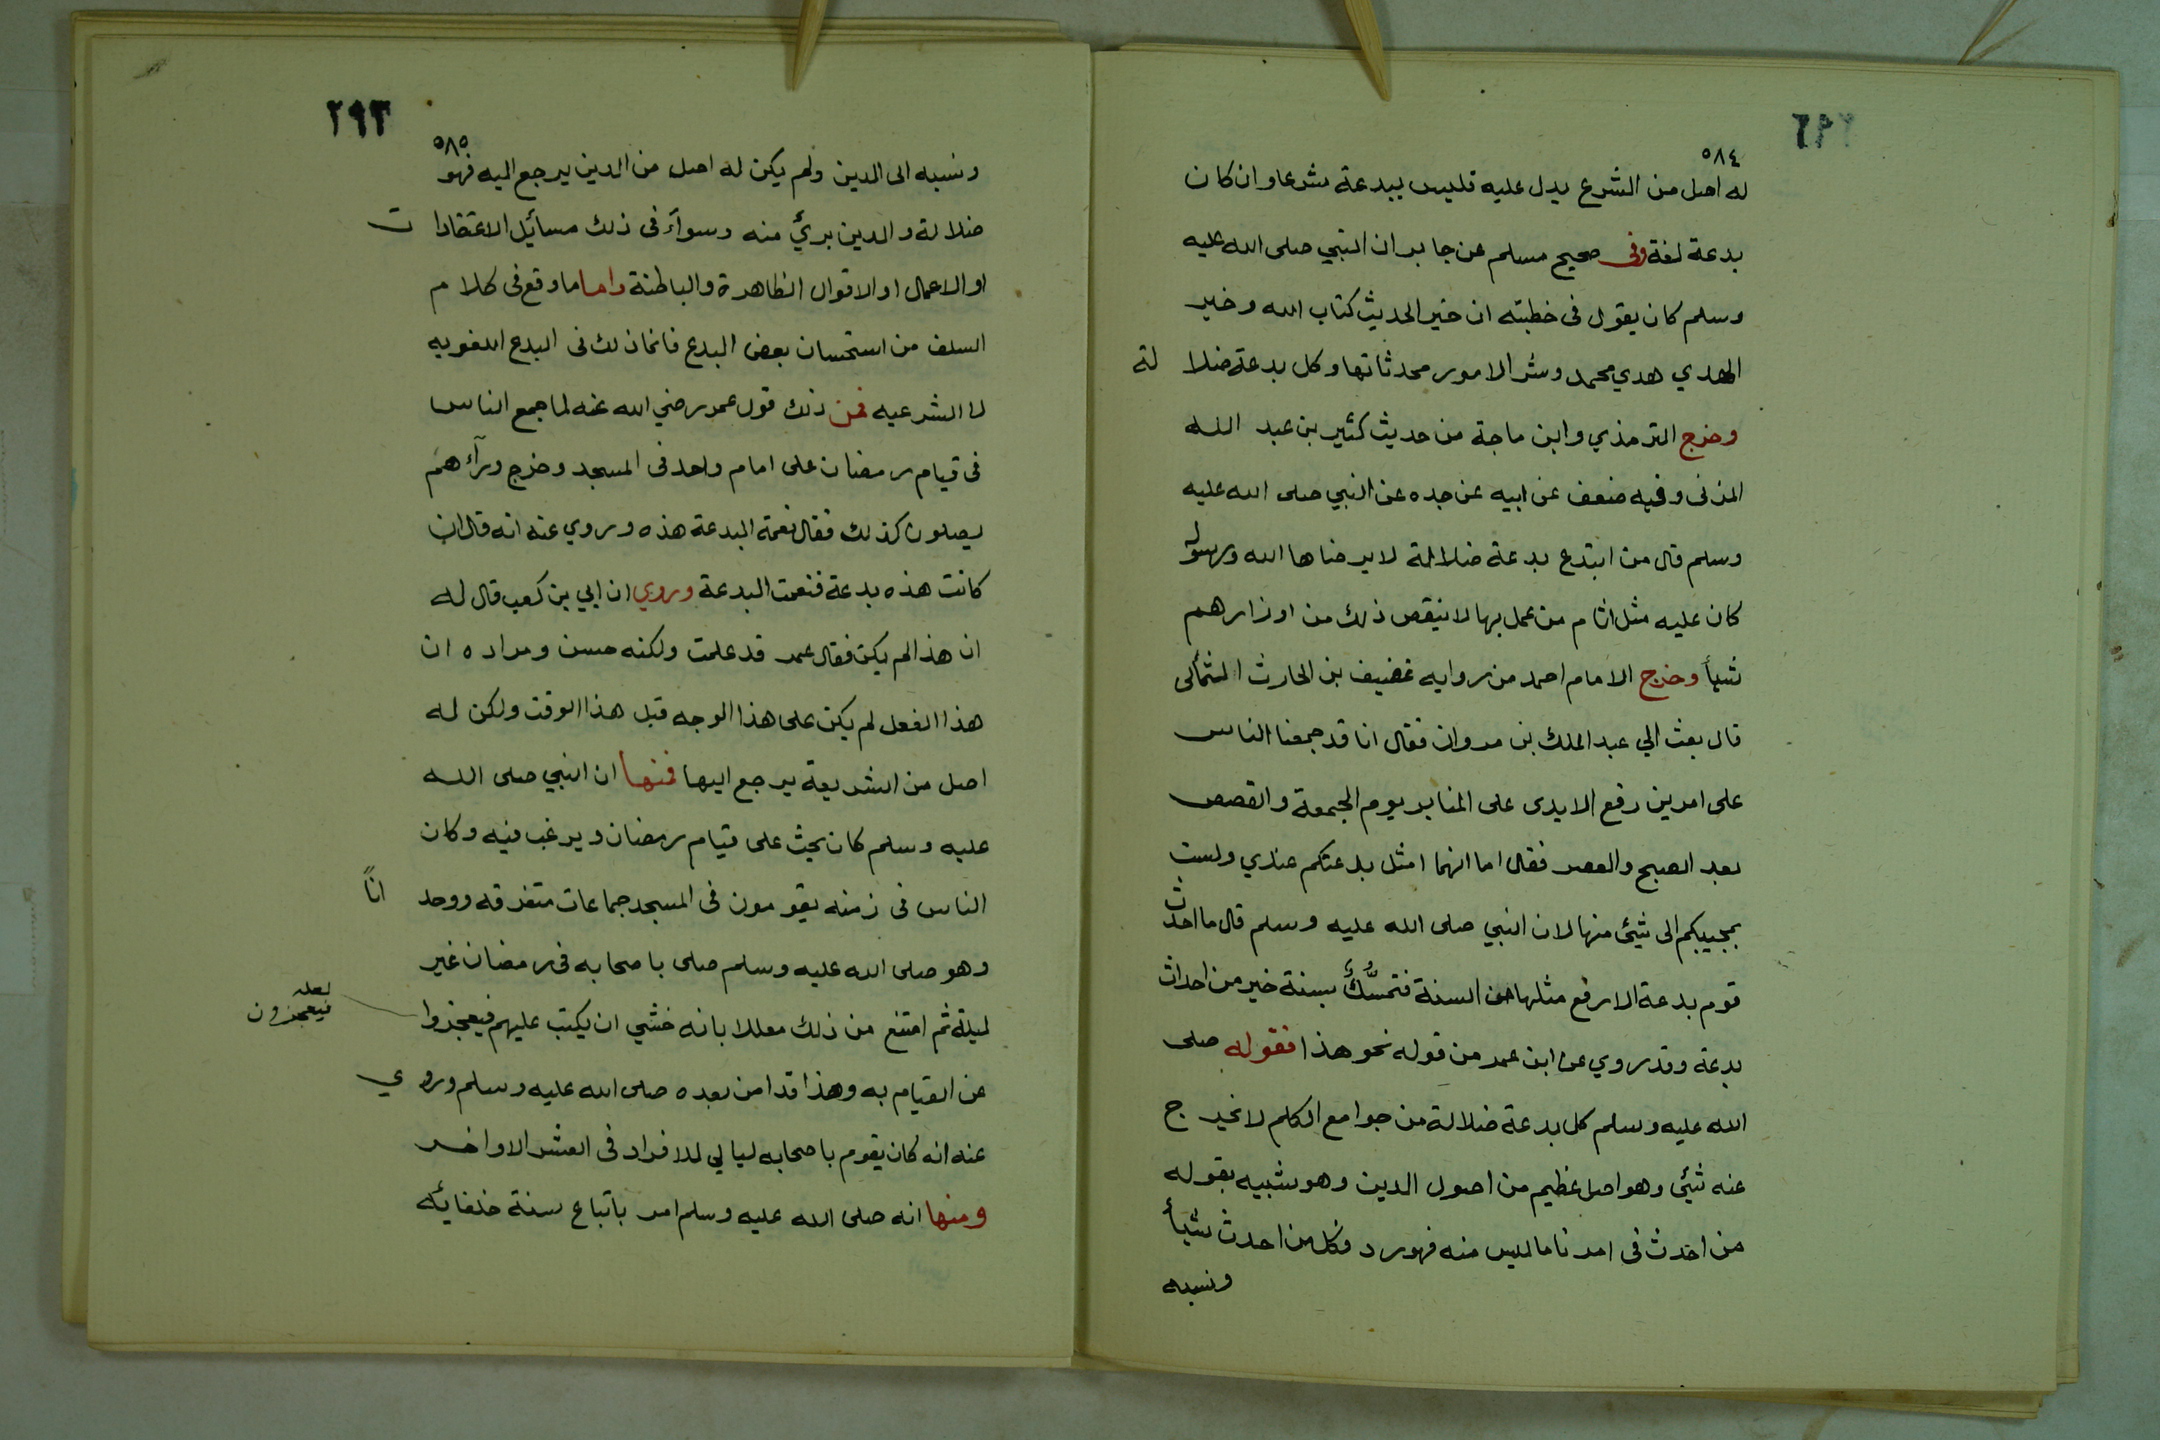 ٥٨٤
له اصل من الشرع يدل عليه فليس ببدعة شرعا وان كان
بدعة لغة وفى صحيح مسلم عن جابر ان النبي صلى الله عليه
وسلم كان يقول فى خطبته ان خير الحديث كتاب الله وخير
الهدي هدي محمد وشر الامور محدثاتها وكل بدعة ضلا لة
وخرج الترمذي وابن ماجة من حديث كثير بن عبد الله
المزنى وفيه ضعف عن ابيه عن جده عن النبي صلى الله عليه
وسلم قال من ابتدع بدعة ضلالة لا يرضاها الله ورسوله
كان عليه مثل اثام من عمل بها لا ينقص ذلك من اوزارهم
شيأ وخرج الامام احمد من روايه غضيف بن الحارث الثمالى
قال بعث الي عبد الملك بن مروان فقال انا قد جمعنا الناس
على امرين رفع الايدى على المنابر يوم الجمعة والقصص
بعد الصبح والعصر فقال اما انهما امثل بدعتكم عندي ولست
بمجيبكم الى شيئ منها لان النبي صلى الله عليه وسلم قال ما احدث
قوم بدعة الا رفع مثلها من السنة فتمسُّكٌ بسنة خير من احداث
بدعة وقد روي عن ابن عمر من قوله نحو هذا فقوله صلى
الله عليه وسلم كل بدعة ضلالة من جوامع الكلم لا يخرج
عنه شيئ وهو اصل عظيم من اصول الدين وهو شبيه بقوله
من احدث فى امرنا ما ليس منه فهو رد فكل من احدث شيأ
ونسبه
٢٩٣
٥٨٥
ونسبه الى الدين ولم يكن له اصل من الدين يرجع اليه فهو
ضلالة والدين بريئ منه وسوآء فى ذلك مسائل الاعتقادا ت
او الاعمال او الاقوال الظاهرة والباطنة واما ما وقع فى كلام
السلف من استحسان بعض البدع فانما ذلك فى البدع اللغويه
لا الشرعيه فمن ذلك قول عمر رضي الله عنه لما جمع الناس
فى قيام رمضان على امام واحد فى المسجد وخرج ورآهم
يصلون كذلك فقال نعمة البدعة هذه وروي عنه انه قال ان
كانت هذه بدعة فنعمت البدعة وروي ان ابي بن كعب قال له
ان هذا لم يكن فقال عمر قد علمت ولكنه حسن ومراده ان
هذا الفعل لم يكن على هذا الوجه قبل هذا الوقت ولكن له
اصل من الشريعة يرجع اليها فمنها ان النبي صلى الله
عليه وسلم كان يحث على قيام رمضان ويرغب فيه وكان
الناس فى زمنه يقومون فى المسجد جماعات متفرقه ووحد اناً
وهو صلى الله عليه وسلم صلى باصحابه فى رمضان غير
ليلة ثم امتنع من ذلك معللا بانه خشي ان يكتب عليهم فيعجزوا
لعله
فيعجزون
عن القيام به وهذا قد امن بعده صلى الله عليه وسلم ورو ي
عنه انه كان يقوم باصحابه ليالي للافراد فى العشر الاواخر
ومنها انه صلى الله عليه وسلم امر باتباع سنة خلفايئه